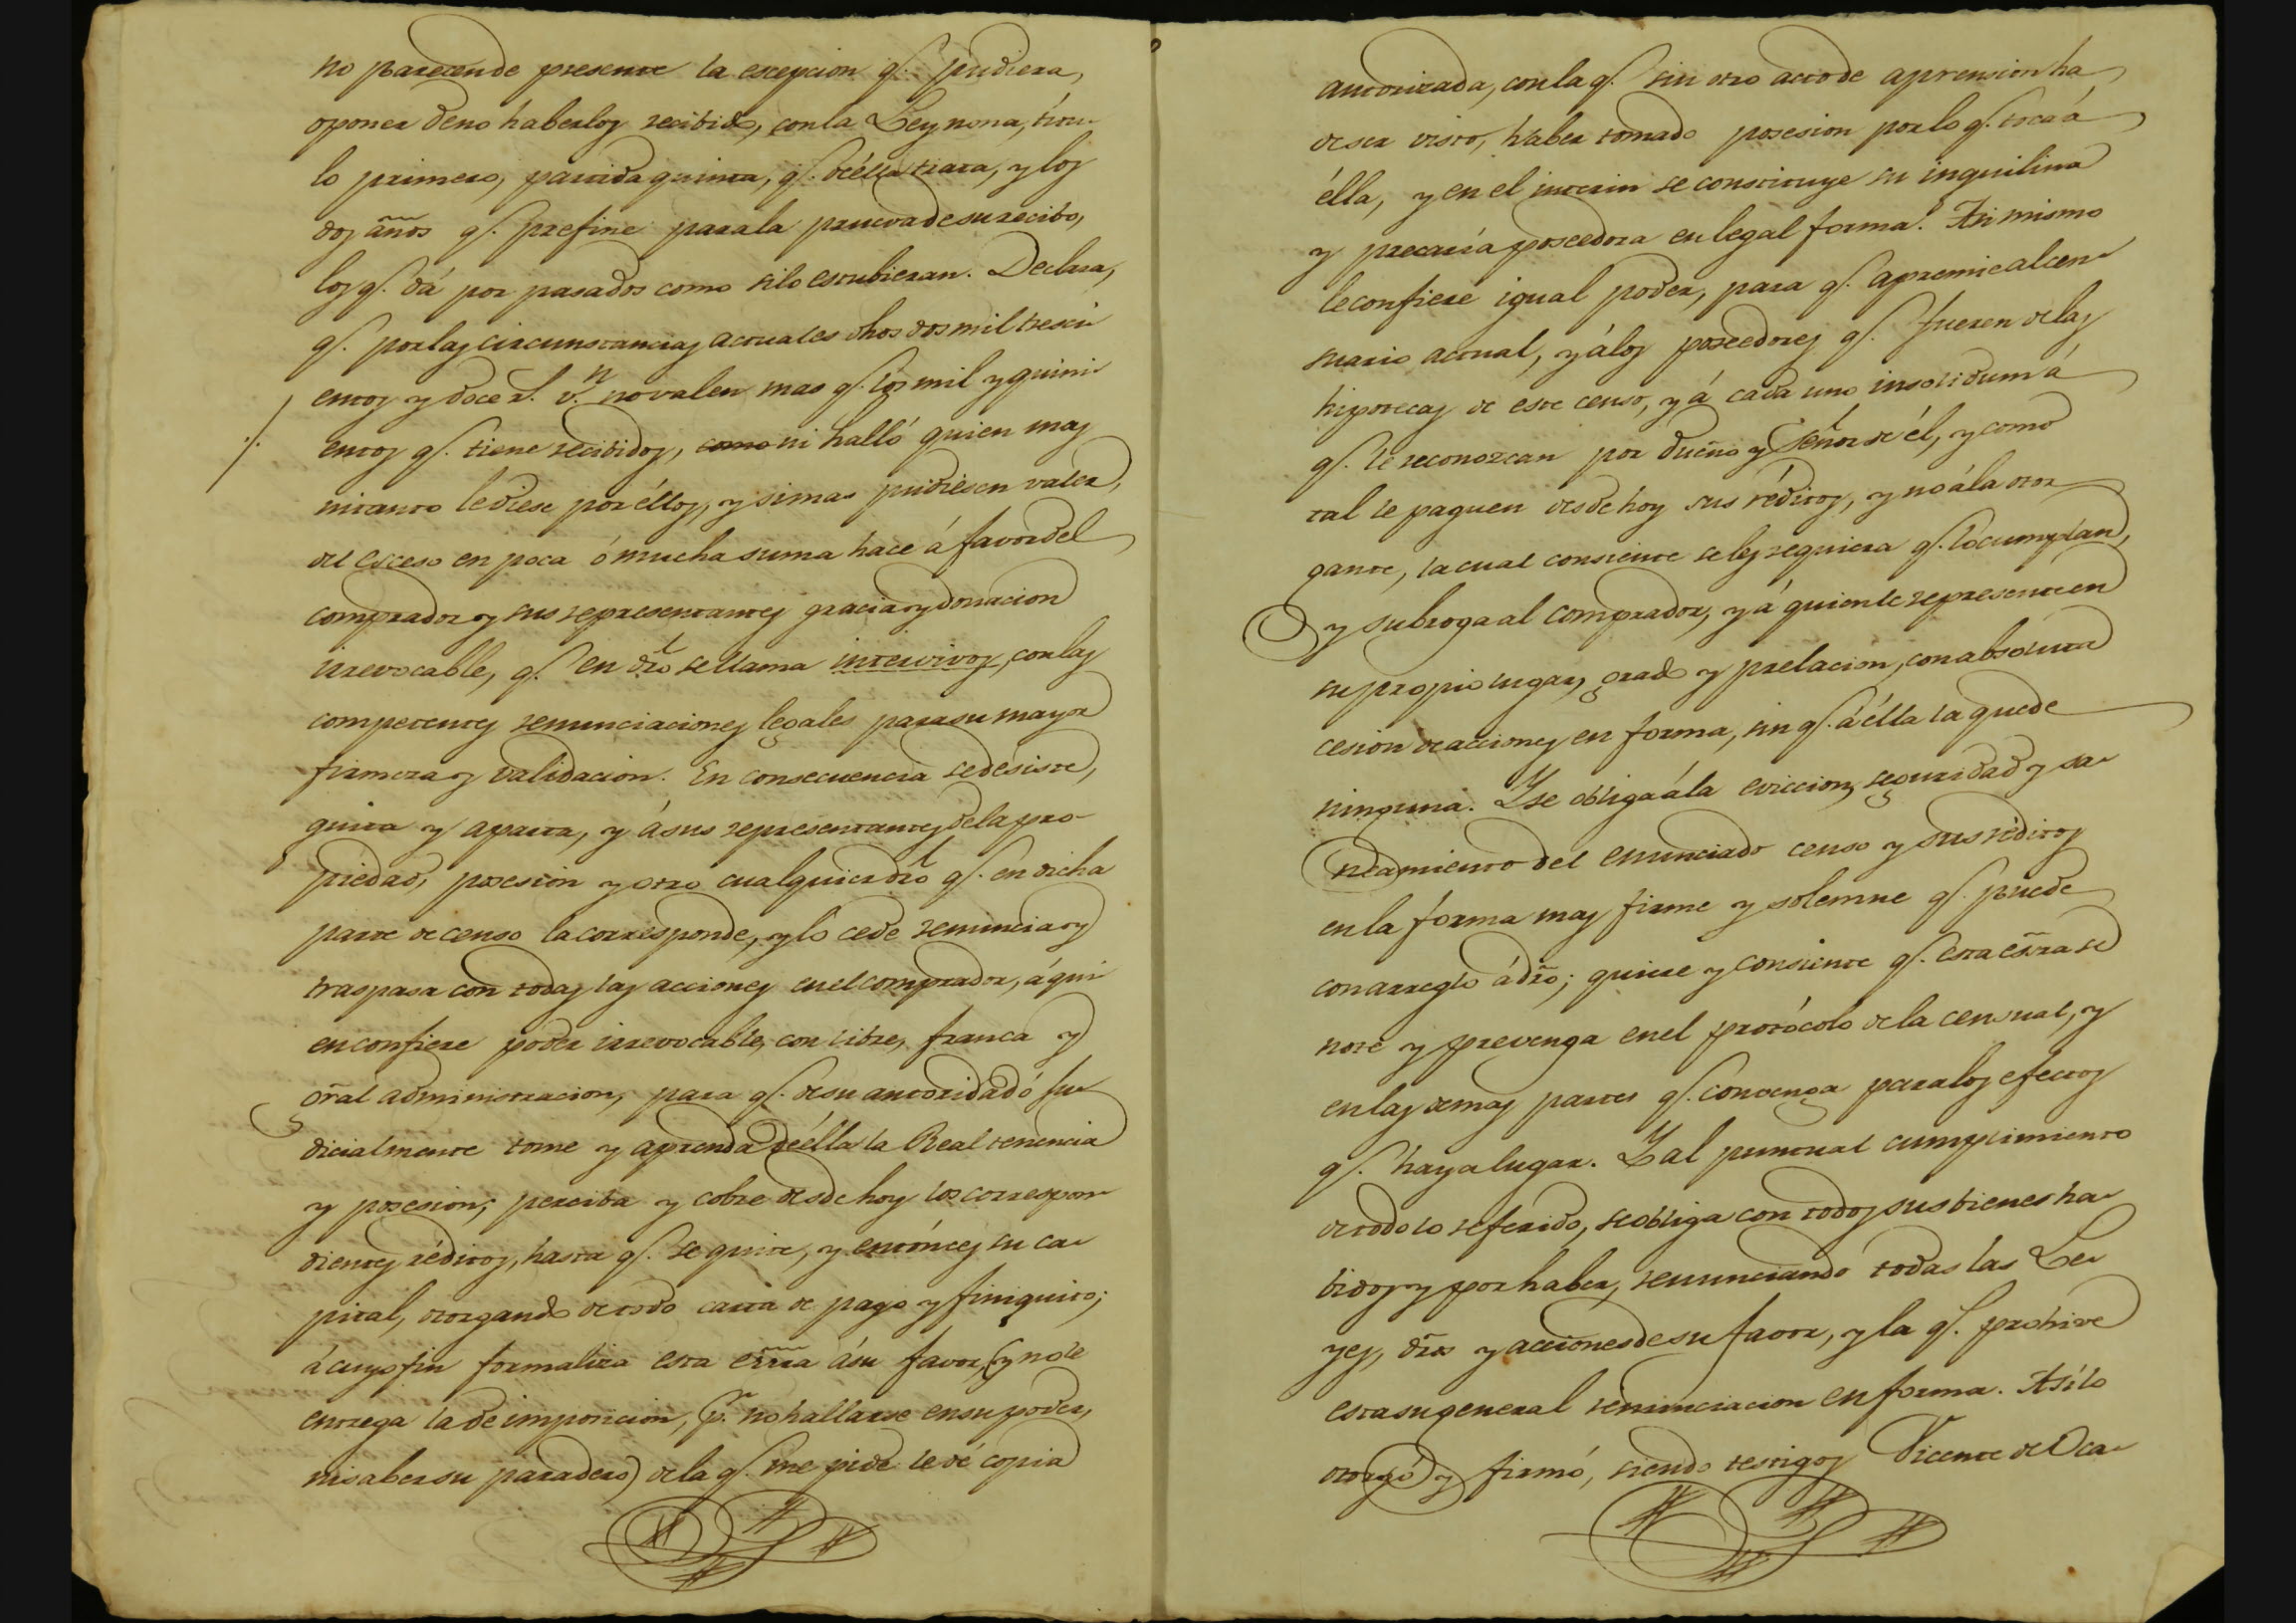 no pareciendo presente la escepcion q.e pudiera
oponer de no háberlos recibido, con la Ley nona, títu-
lo primero, partida quinta, q.e de élla trata, y los
dos años q.e prefine para la prueva de su recibo,
los q.e dá por pasados como si lo estubieran. Declara,
q.e por las circunstancias actuales dhos dos mil tresci-
entos y doce r.s v.n no valen mas q.e los mil y quini-
entos q.e tiene recibidos, como ni halló quien mas
ni tanto le diese por éllos, y si mas pudiesen valer,
del esceso en poca ó mucha suma hace á favor del
comprador y sus representantes gracia y donacion
irrevocable, q.e en dro se llama intervivos, con las
competentes renunciaciones legales para su mayor
firmeza y validacion. En consecuencia se desiste,
quita y aparta, y á sus representantes de la pro-
piedad, posesion y otro cualquier dro q.e en dicha
parte de censo la corresponde, y lo cede renuncia y
traspasa con todas las acciones en el comprador, á qui-
en confiere poder irrevocable, con libre, franca y
gral administracion, para q.e de su autoridad ó ju-
dicialmente tome y aprenda de élla la Real tenencia
y posesion; perciba y cobre desde hoy los correspon-
dientes réditos, hasta q.e se quite, y entónces su ca-
pital, otorgando de todo carta de pago y finiquito;
á cuyo fin formaliza esta escra á su favor, (y no le
entrega la de imposicion, p.r no hallarse en su poder,
ni saber su paradero) de la q.e me pide le dé copia
autorizada, con la q.e sin otro acto de aprension ha
de ser visto, háber tomado posesion por lo q.e toca á
élla, y en el interin se constituye su inquilina
y precaria poseedora en legal forma. Asi mismo
le confiere igual poder, para q.e apremie al cen-
suario actual, y á los poseedores q.e fueren de las
hipotecas de este censo, y á cada uno insolidum á
q.e le reconozcan por dueño y Señor de él, y como
tal le paguen desde hoy sus réditos, y no á la otor-
gante, la cual consiente se les requiera q.e lo cumplan,
y subroga al comprador, y á quien le represente en
su propio lugar, grado y prelacion, con absoluta
cesion de acciones en forma, sin q.e á élla la quede
ninguna. Y se obliga á la eviccion, seguridad y sa-
neamiento del enunciado censo y sus réditos
en la forma mas firme y solemne q.e puede
con arreglo á dro; quiere y consiente q.e esta escra se
note y prevenga en el protócolo de la censual, y
en las demas partes q.e convenga para los efectos
q.e haya lugar. Y al puntual cumplimiento
de todo lo referido, se obliga con todos sus bienes ha-
bidos y por haber, renunciando todas las Le-
yes, dros y acciones de su favor, y la q.e prohive
esta su general renunciacion en forma. Asi lo
otorgó y firmó, siendo testigos Vicente de Oca-